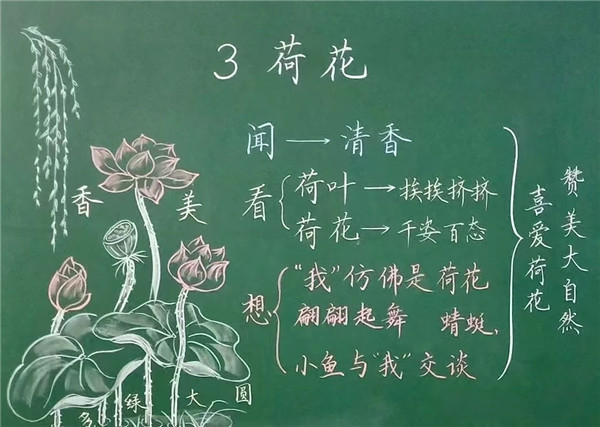 3 荷花
闻→清香
看
荷叶→挨挨挤挤
荷花→千姿百态
想
“我”仿佛是荷花
翩翩起舞 蜻蜓,
小鱼与“我”交谈
喜爱荷花
赞美大自然
香 美
多 绿 大 圆